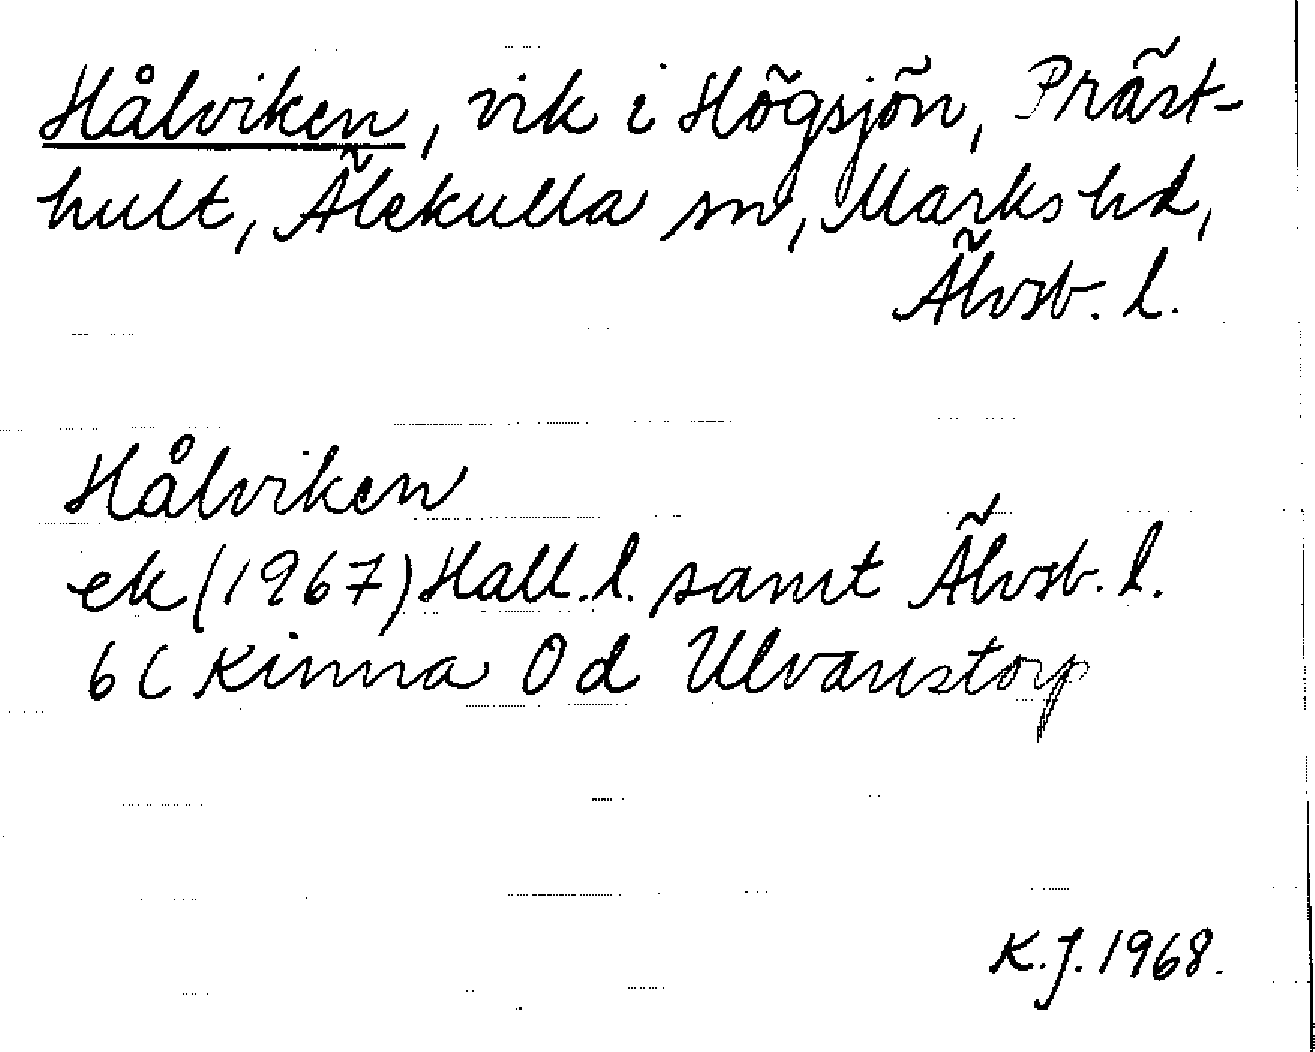 Hålviken, vik i Högsjön, Präst-
hult, Älekulla sn, Marks hd,
Älvsb. l.
Hålviken
ek (1967) Hall. l. samt Älvsb. l.
6C Kinna 0d Ulvanstorp
K.J. 1968.